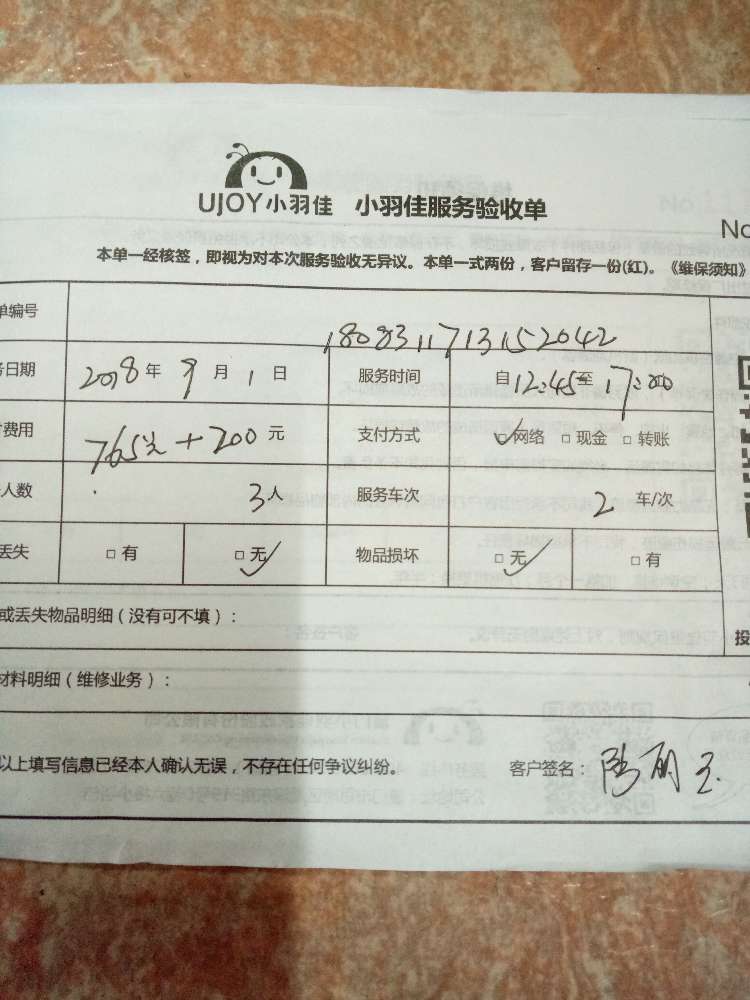 UJOY小羽佳 小羽佳服务验收单
No
本单一经核签，即视为对本次服务验收无异议。本单一式两份，客户留存一份(红)。《维保须知》
单编号 1808311713152042
务日期 2018年 9月 1日 服务时间 自12:45至 17:00
费用 765元+200元 支付方式 ☑网络 □现金 □转账
人数 3人 服务车次 2车/次
丢失 □有 ☑无 物品损坏 ☑无 □有
或丢失物品明细（没有可不填）：
投
材料明细（维修业务）：
以上填写信息已经本人确认无误，不存在任何争议纠纷。 客户签名：